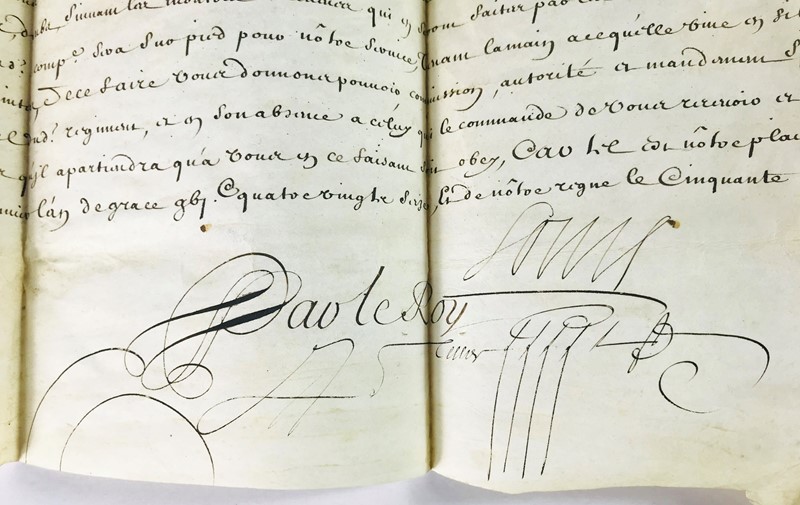 suivant les qui en faites par
comp.e sera sus pied pour nôtre service, Tenant la main a ce qu'elle vive en si
De ce faire vous donnons pouvoir commission, autorité et mandement
regiment, et en son absence a celuy qui le commande de vous recevoir et
qu'il apartiendra qu'a vous en ce faisant soit obey, Car tel est nôtre plai
l'an de grace gbj.C quatre vingts seize, Et de nôtre regne le Cinquante
Louis
Par le Roy